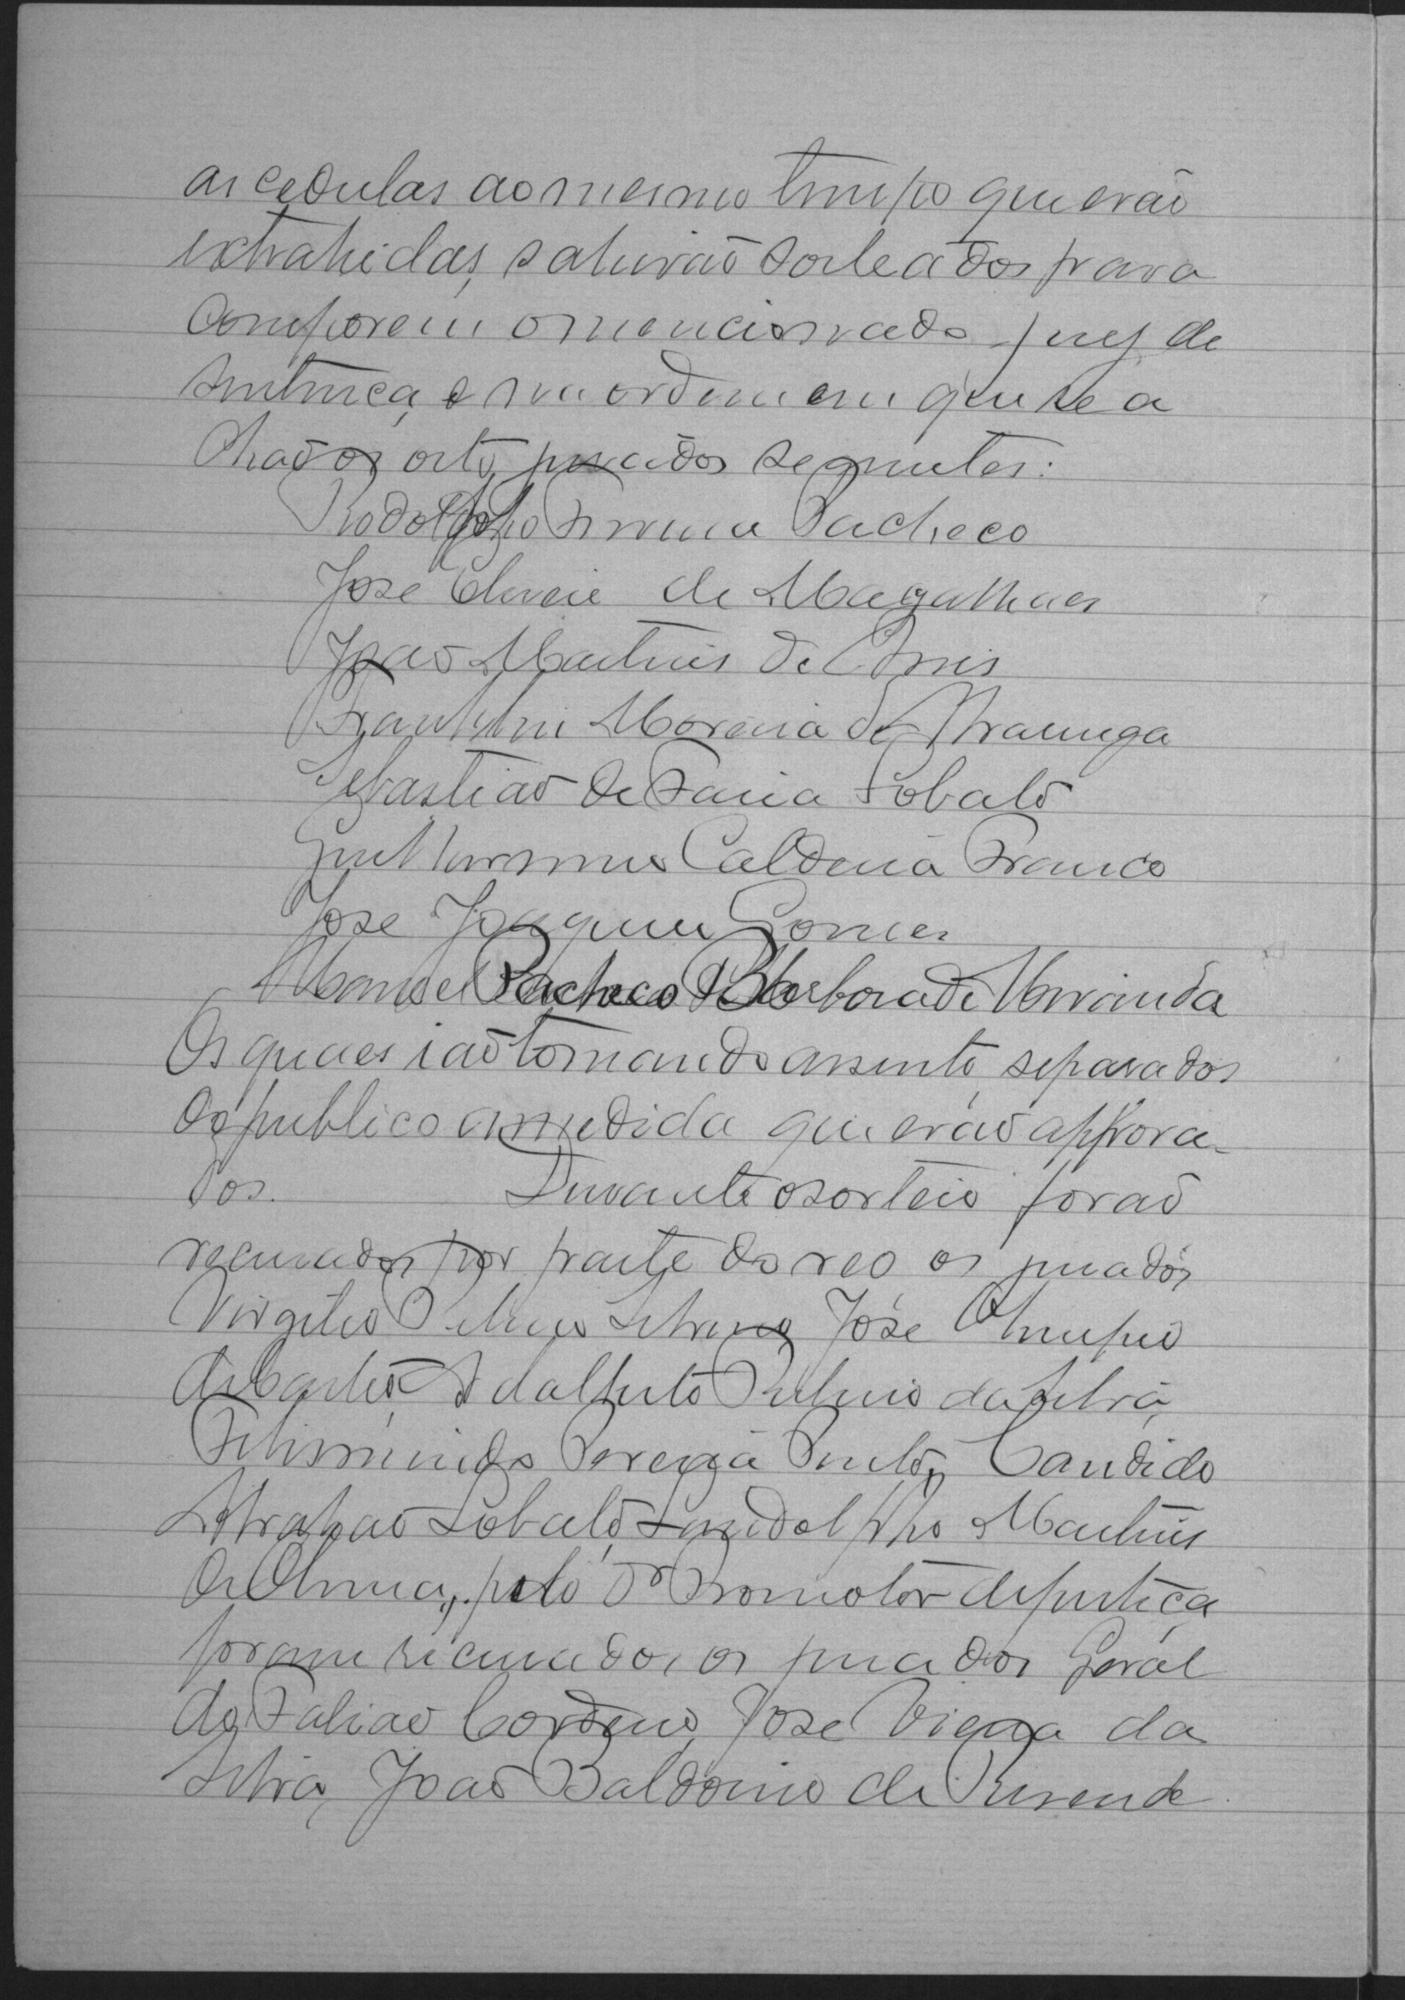 as cedulas ao mesmo tempo que erão
extrahidas, sahirão sorteados para
comporem o mencionado jury de
sentença, e na ordem em que se a
chão os oito jurados seguintes:
Rodolpho Pacheco
José de Magalhaes
João Martins de Assis
Franklin Moreira de
Sebastião de Faria Lobato
Guilhermino Caldeira Franco
José Joaquim Gomes
Manoel Pacheco Barbosa de Miranda
Os quaes ião tomando assento, separados
do publico a medida que erão approva-
dos. Durante o sorteio forão
recusados por parte do reo os jurados
Virgilio José Olimpio
de Castro, Adalberto da Silva,
Pereira Pinto, Candido
Abrahao Lobato, Lindolpho Martins
de, pelo Dr Promotor de justiça
foram recusados os jurados Geral
do Fabiao Cordeiro, José Vieira da
Silva, João Baldoino de Resende